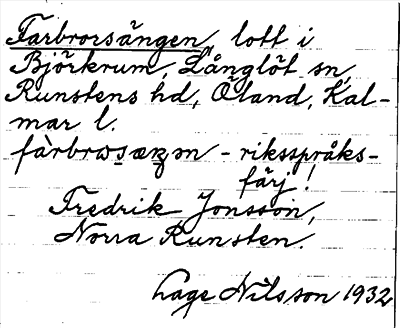 Farbrorsängen, lott i
Björkrum, Långlöt sn,
Runstens hd, Öland, Kal-
mar l.
- riksspråks-
färj!
Fredrik Jonsson,
Norra Runsten.
Lage Nilsson 1932